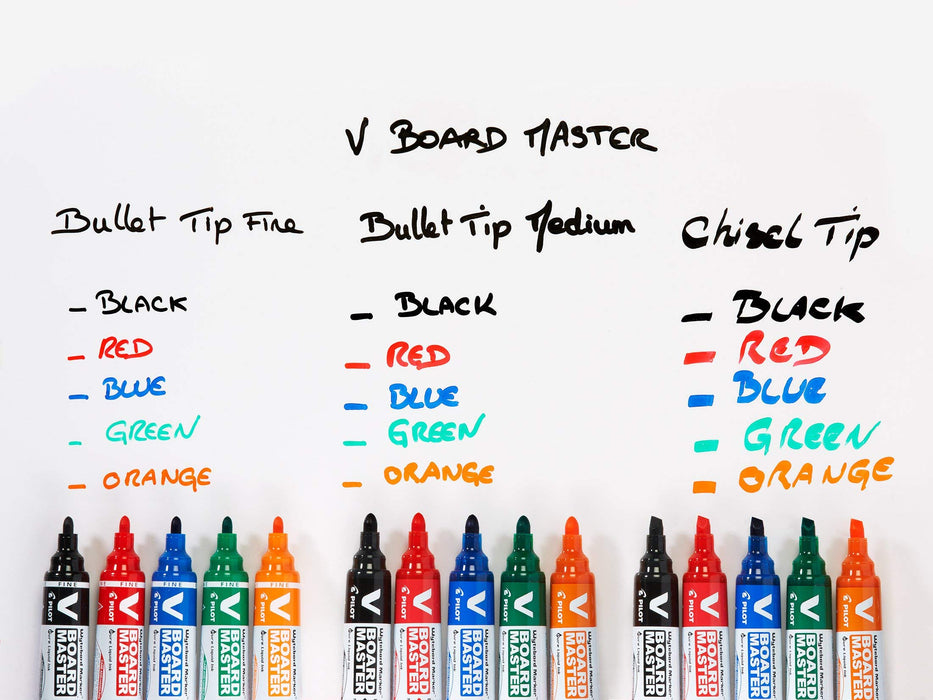 V BOARD MASTER
Bullet Tip Fine
- BLACK
- RED
- BLUE
- GREEN
- ORANGE
Bullet Tip Medium
- BLACK
- RED
- BLUE
- GREEN
- ORANGE
Chisel Tip
- BLACK
- RED
- BLUE
- GREEN
- ORANGE
FINE
V
PILOT
BOARD MASTER
FINE
V
PILOT
BOARD MASTER
FINE
V
PILOT
BOARD MASTER
FINE
V
PILOT
BOARD MASTER
FINE
V
PILOT
BOARD MASTER
V
PILOT
BOARD MASTER
V
PILOT
BOARD MASTER
V
PILOT
BOARD MASTER
V
PILOT
BOARD MASTER
V
PILOT
BOARD MASTER
V
PILOT
BOARD MASTER
V
PILOT
BOARD MASTER
V
PILOT
BOARD MASTER
V
PILOT
BOARD MASTER
V
PILOT
BOARD MASTER